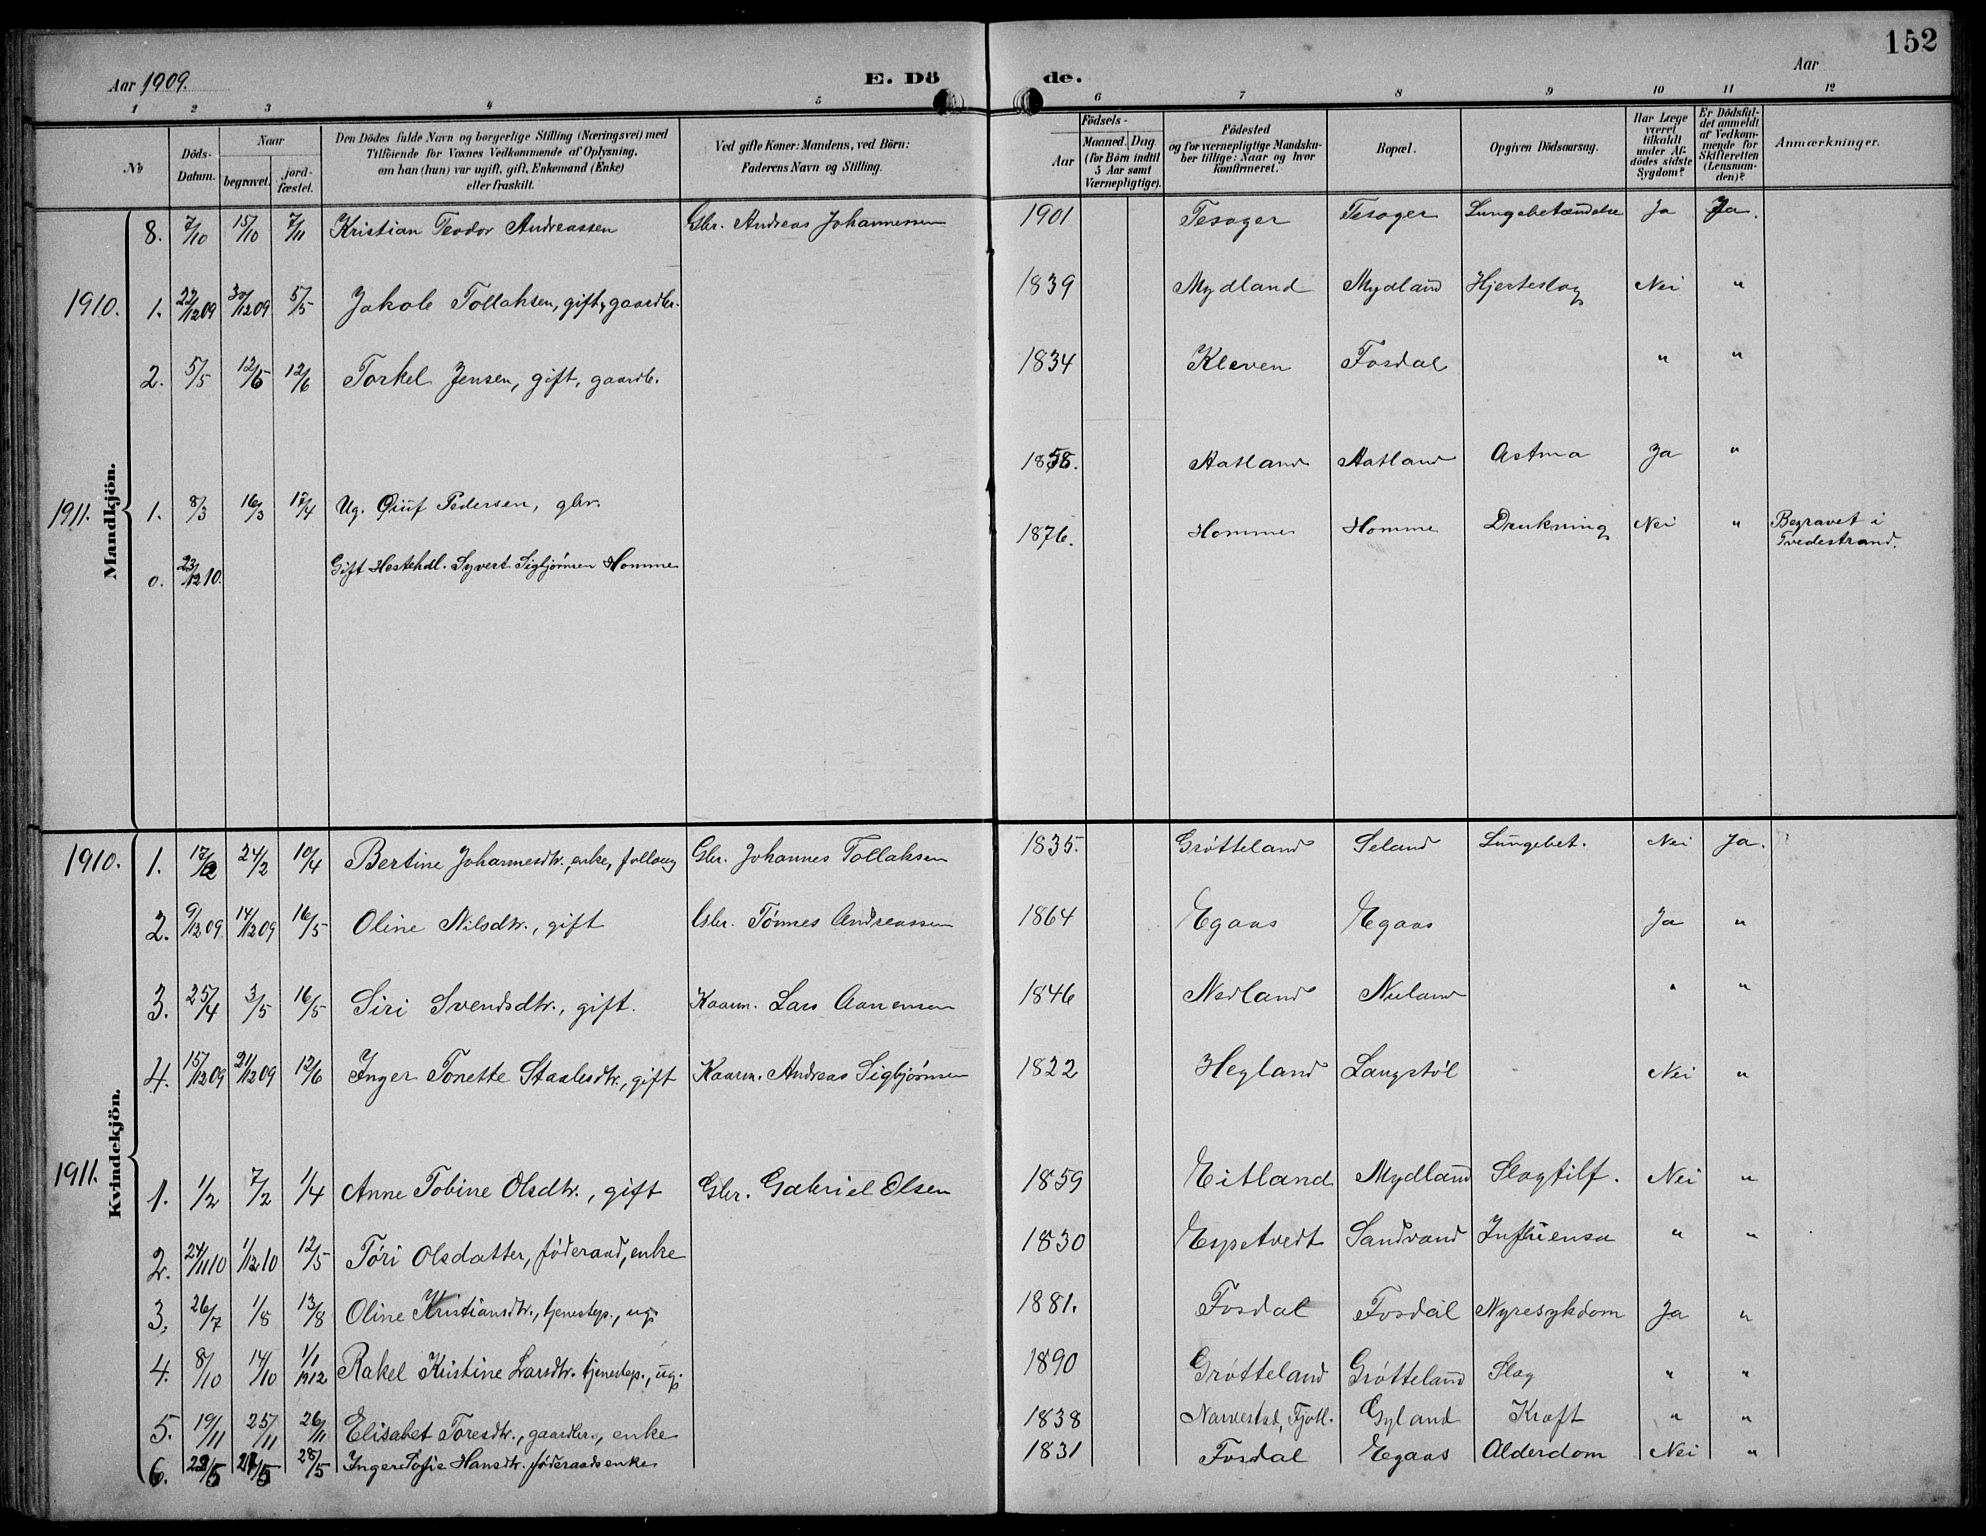 152
Aar 1909. E. Dö de. Aar
1 2 3 4 5 6 7 8 9 10 11 12
No Döds-Datum. Naar begravet. jord-fæstet. Den Dödes fulde Navn og borgerlige Stilling (Næringsvei) med Tilföiende for Voxnes Vedkommende af Oplysning, om han (hun) var ugift, gift, Enkemand (Enke) eller fraskilt. Ved gifte Koner: Mandens, ved Börn: Faderens Navn og Stilling. Födsels- Aar Maaned. Dag. (for Börn indtil 5 Aar samt Værnepligtige). Födested og for værnepligtige Mandskaber tillige: Naar og hvor konfirmeret. Bopæl. Opgiven Dödsaarsag. Har Læge været tilkaldt under Afdödes sidste Sygdom? Er Dödsfaldet anmeldt af Vedkommende for Skifteretten (Lensmanden)? Anmærkninger.
Mandkjön.
8. 7/10 15/10 7/11 Kristian Teodor Andreassen Gbr. Andreas Johannessen 1901 Tesager Tesager Lungebetændelse Ja Ja.
1910. 1. 22/12 09 30/12 09 5/5 Jakob Tollaksen, gift, gaardbr. 1839 Mydland Mydland Hjerteslag Nei "
2. 5/5 12/5 12/6 Torkel Jensen, gift, gaardb. 1834 Kleven Fosdal " "
1911. 1. 8/3 16/3 17/4 Ug. Oluf Pedersen, gbr. 1858. Hatland Hatland Astma Ja "
0. 23/12 10. Gift Hestehdl. Syvert Sigbjørnsen Homme 1876. Homme Homme Drukning Nei " Begravet i
Tvedestrand.
Kvindekjön.
1910. 1. 17/2 24/2 10/4 Bertine Johannesdtr., enke, Gbr. Johannes Tollaksen 1835. Grøtteland Seland Lungebet. Nei Ja.
2. 9/12 09 14/12 09 16/5 Oline Nilsdtr., gift Gbr. Tønnes Andreassen 1864 Egaas Egaas Ja "
3. 25/4 3/5 16/5 Siri Svendsdtr., gift. Kaarm. Lars Aanensen 1846 Nedland Nuland " "
4. 15/12 09 21/12 09 12/6 Inger Tonette Staalesdtr., gift Kaarm. Andreas Sigbjørnsen 1822 Hegland Langstøl Nei "
1911. 1. 1/2 7/2 1/4 Anne Tobine Olsdtr., gift Gbr. Gabriel Olsen 1859 Eitland Mydland Slagtilf. Nei "
2. 24/11 10 1/12 10 12/5 Tøri Olsdatter, føderaad, enke 1830 Espetvedt Sandvand Influensa " "
3. 26/7 1/8 13/8 Oline Kristiansdtr., tjenestep., ug. 1881. Fosdal Fosdal Nyresykdom Ja "
4. 8/10 14/10 1/1 1912 Rakel Kristine Larsdtr. tjenestep., ug. 1890 Grøtteland Grøtteland Slag " "
5. 19/11 25/11 26/11 Elisabet Toresdtr., gaardbr., enke 1838 Narvestad, Fjotl. Gyland Kræft " "
6. 22/5 27/5 28/5 Inger Sofie Hansdtr. føderaadsenke 1831 Fosdal Egaas Alderdom Nei "